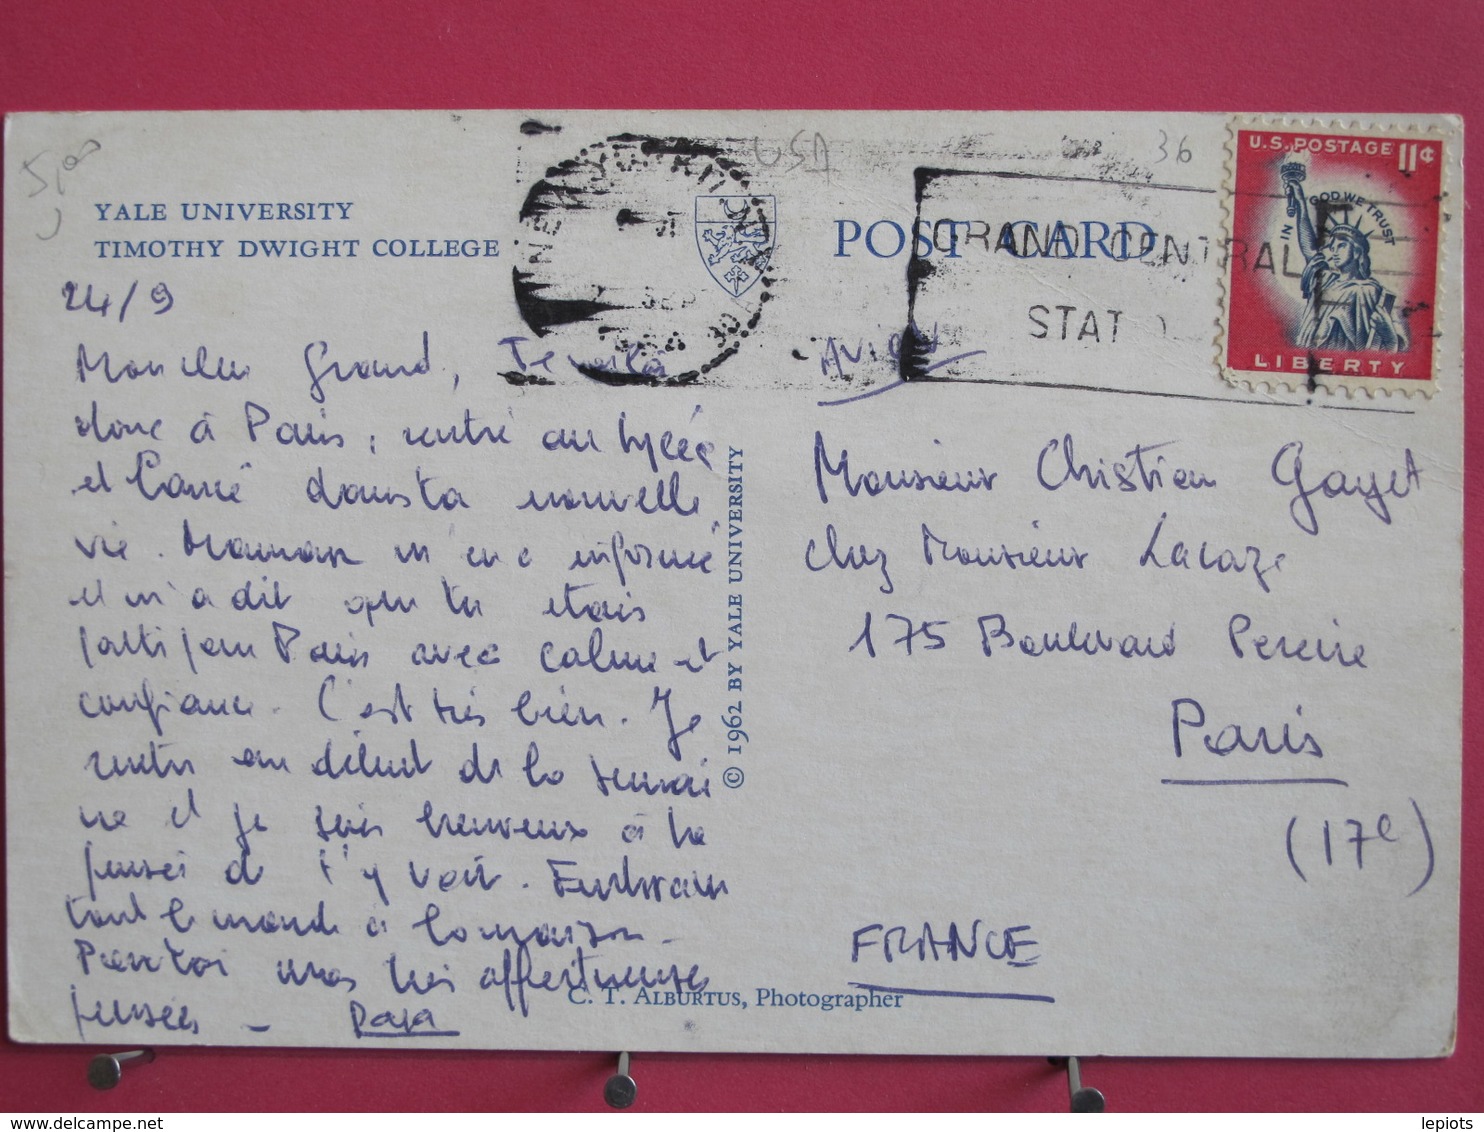 5,00
USA
36
YALE UNIVERSITY
TIMOTHY DWIGHT COLLEGE
POST CARD
NEW YORK
SEP
GRAND CENTRAL
STAT
U.S. POSTAGE 11¢
IN GOD WE TRUST
LIBERTY
24/9
Mon cher grand, Te voilà
donc à Paris, rentré au lycée
et lancé dans ta nouvelle
vie. Maman m'en a informé
et m'a dit que tu étais
parti pour Paris avec calme et
confiance. C'est très bien. Je
rentre au début de la semai
ne et je suis heureux à la
pensée de t'y voir. Embrasse
tout le monde à la maison.
Pour toi mes très affectueuses
pensées - Papa
© 1962 BY YALE UNIVERSITY
C. T. ALBURTUS, Photographer
Avion
Monsieur Christian Gayet
chez Monsieur Lacaze
175 Boulevard Pereire
Paris
(17e)
FRANCE
lepiots